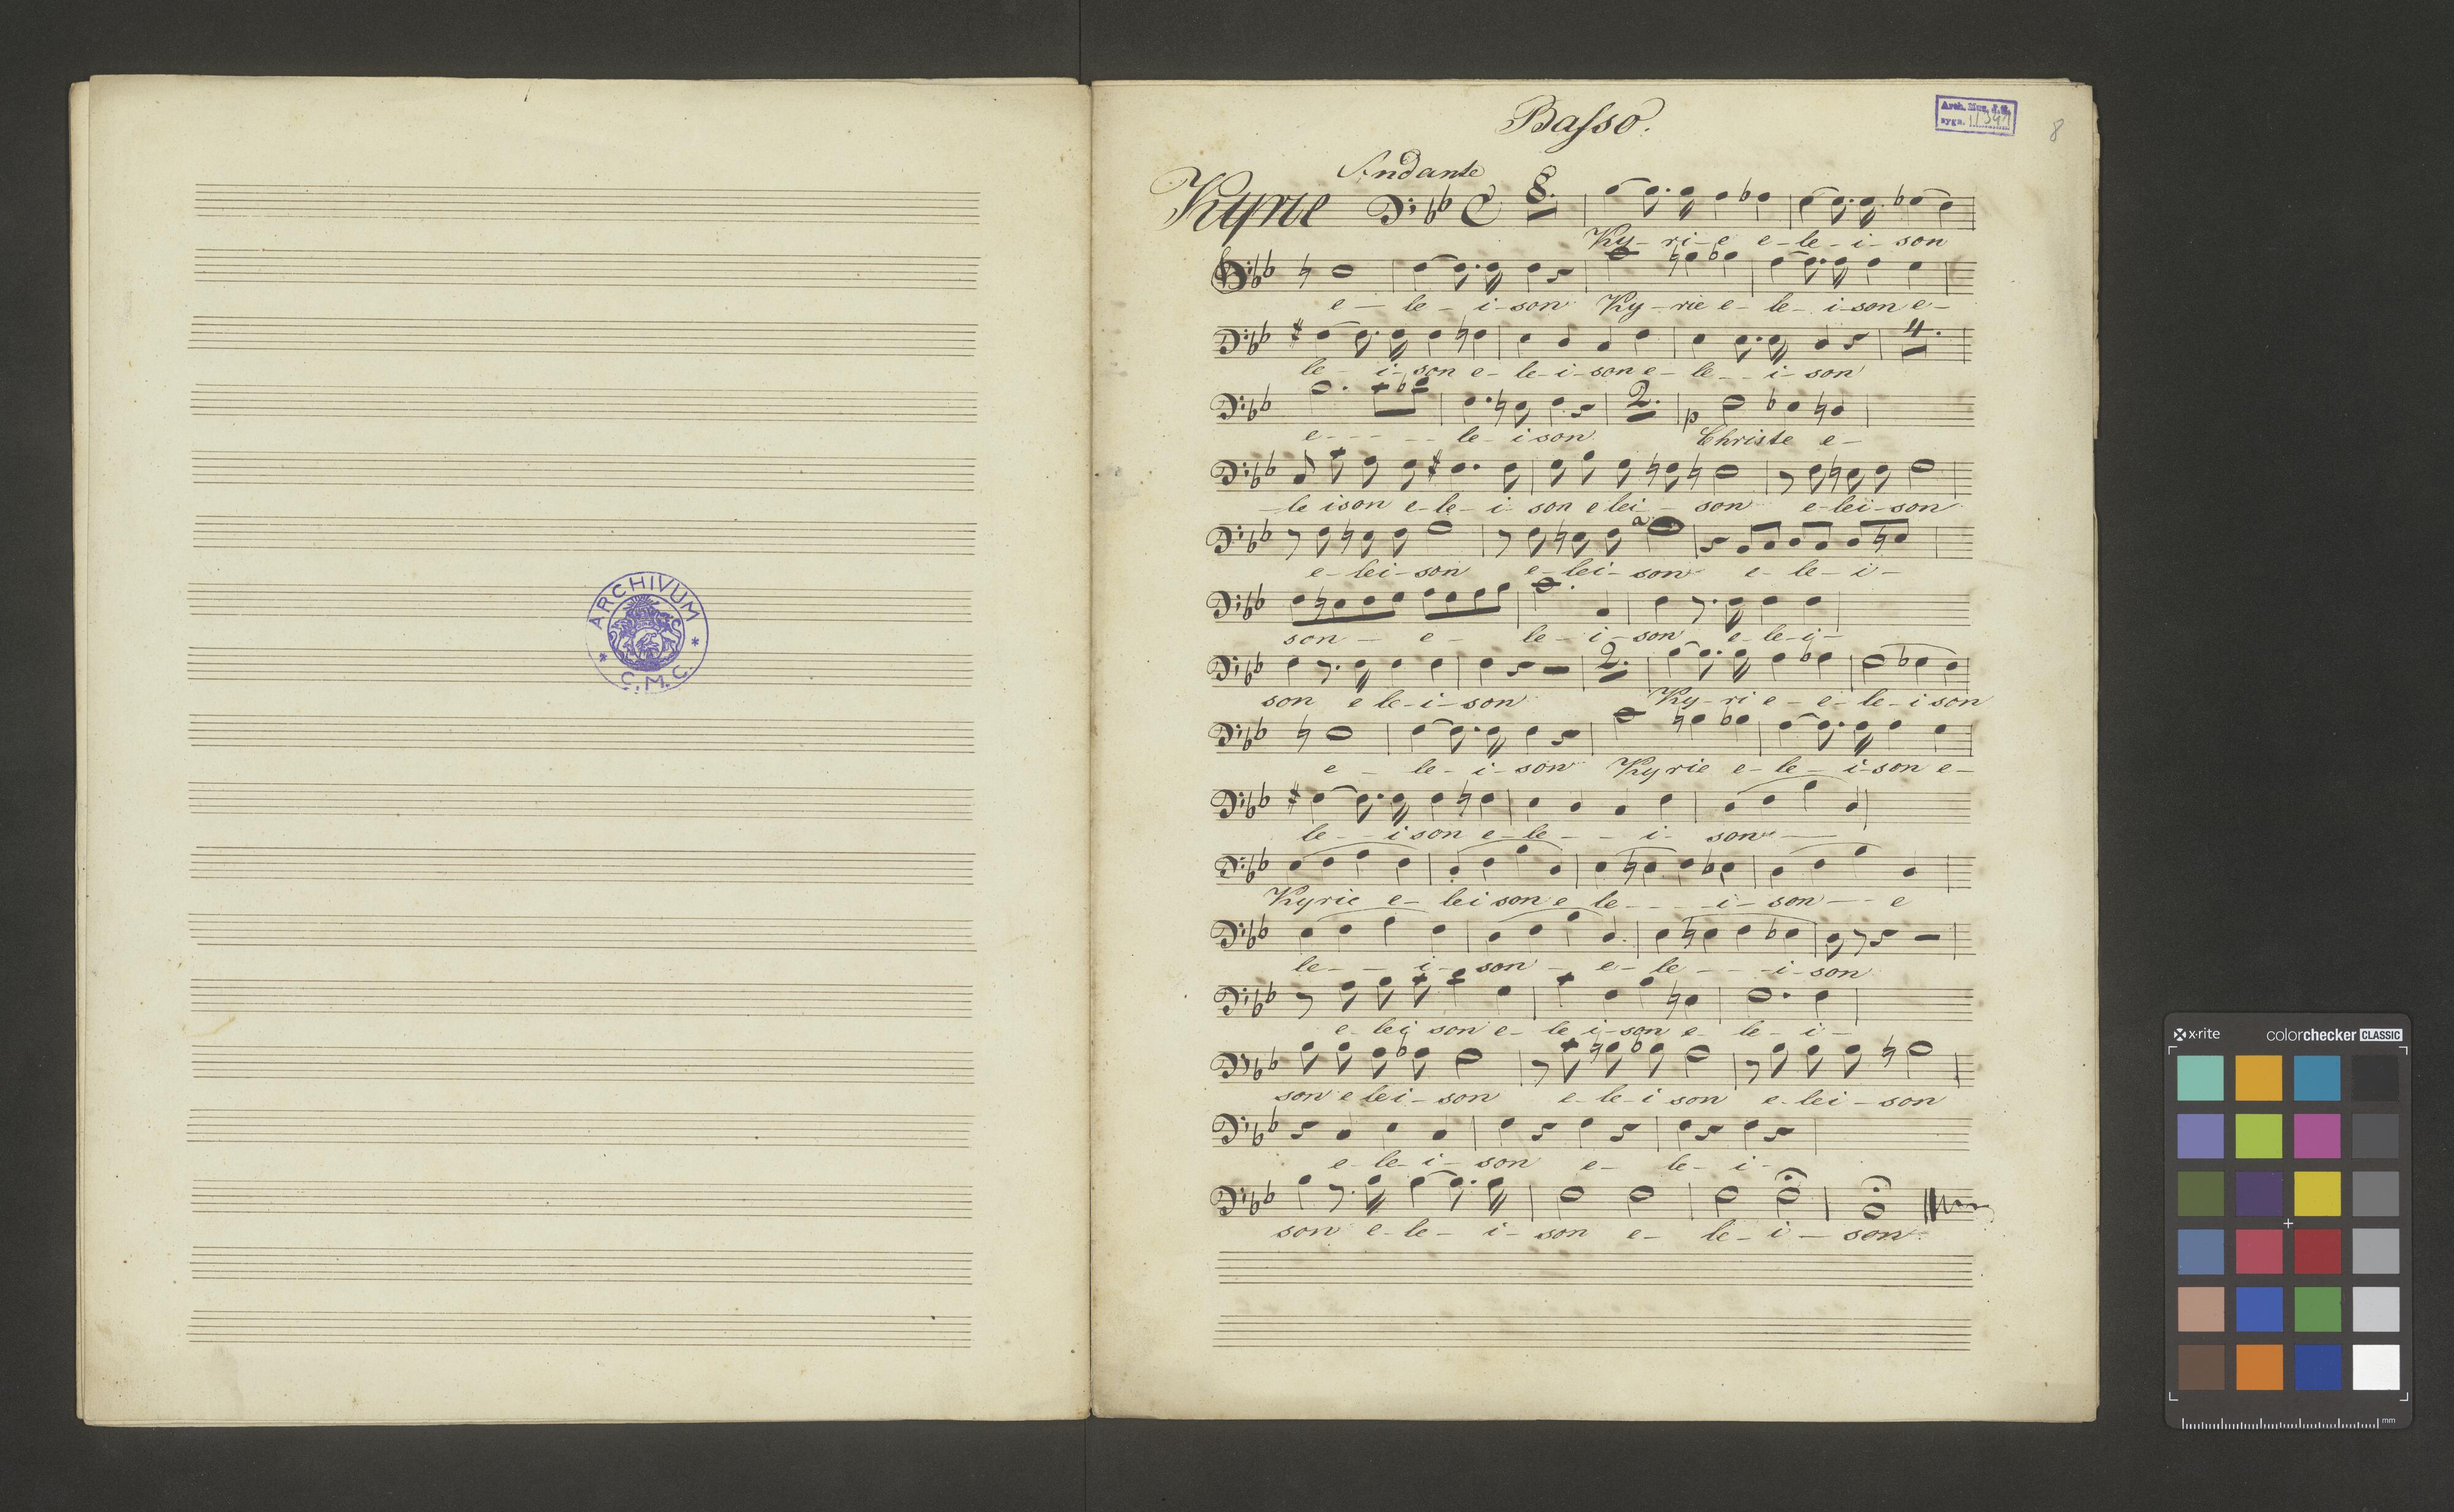 ARCHIVUM
C.M.C.
Basso.
Arch. Mus. J. G.
sygn.
8
Andante
Kyrie
8.
Ky - ri - e e - le - i - son
e - le - i - son Ky - rie e - le - i - son e -
le - i - son e - le - i - son e - le - - i - son
4.
e - - - - - le - i son Christe e -
2.
p
- le ison e - le - i - son e lei - son e - lei - son
e - lei - son e - lei - son e - le - i -
a
son - e - le - i - son e - le - i -
son e le - i - son Ky - ri e - e - le - i son
2.
e - le - i - son Ky rie e - le - i - son e -
le - - i son e - le - - i - son -
Kyrie e - lei son e le - - - i - son - - e
le - - i - son - e - le - - - i - son
e - lei son e - le i - son e - le - i -
son e lei - son e - le - i son e - lei - son
e - le - i - son e - le - i -
son e - le - i - son e - le - i - son.
x-rite
colorchecker CLASSIC
mm